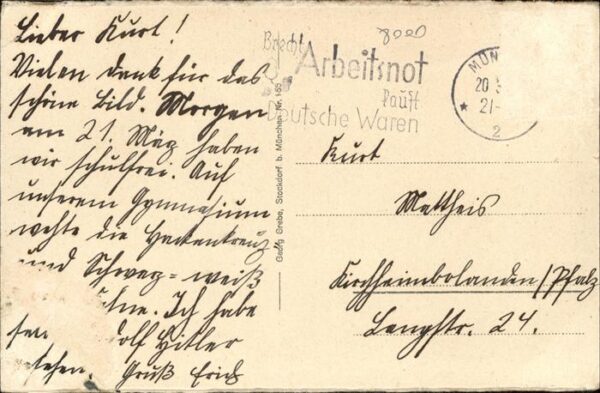 Lieber Kurt!
Vielen dank für das
schöne Bild. Morgen
am 21. März haben
wir schulfrei. Auf
unserem Gymnasium
wehte die Hackenkreuz
und Schwarz=weiß
hne. Ich habe
olf Hitler
sehen. Gruß Erich
8000
Brecht
Arbeitsnot
kauft
Deutsche Waren
MÜN
20
21-
2
Georg Grebe, Stockdorf b. München Nr. 155
Kurt
Mattheis
Kirchheimbolanden/Pfalz
Langstr. 24.